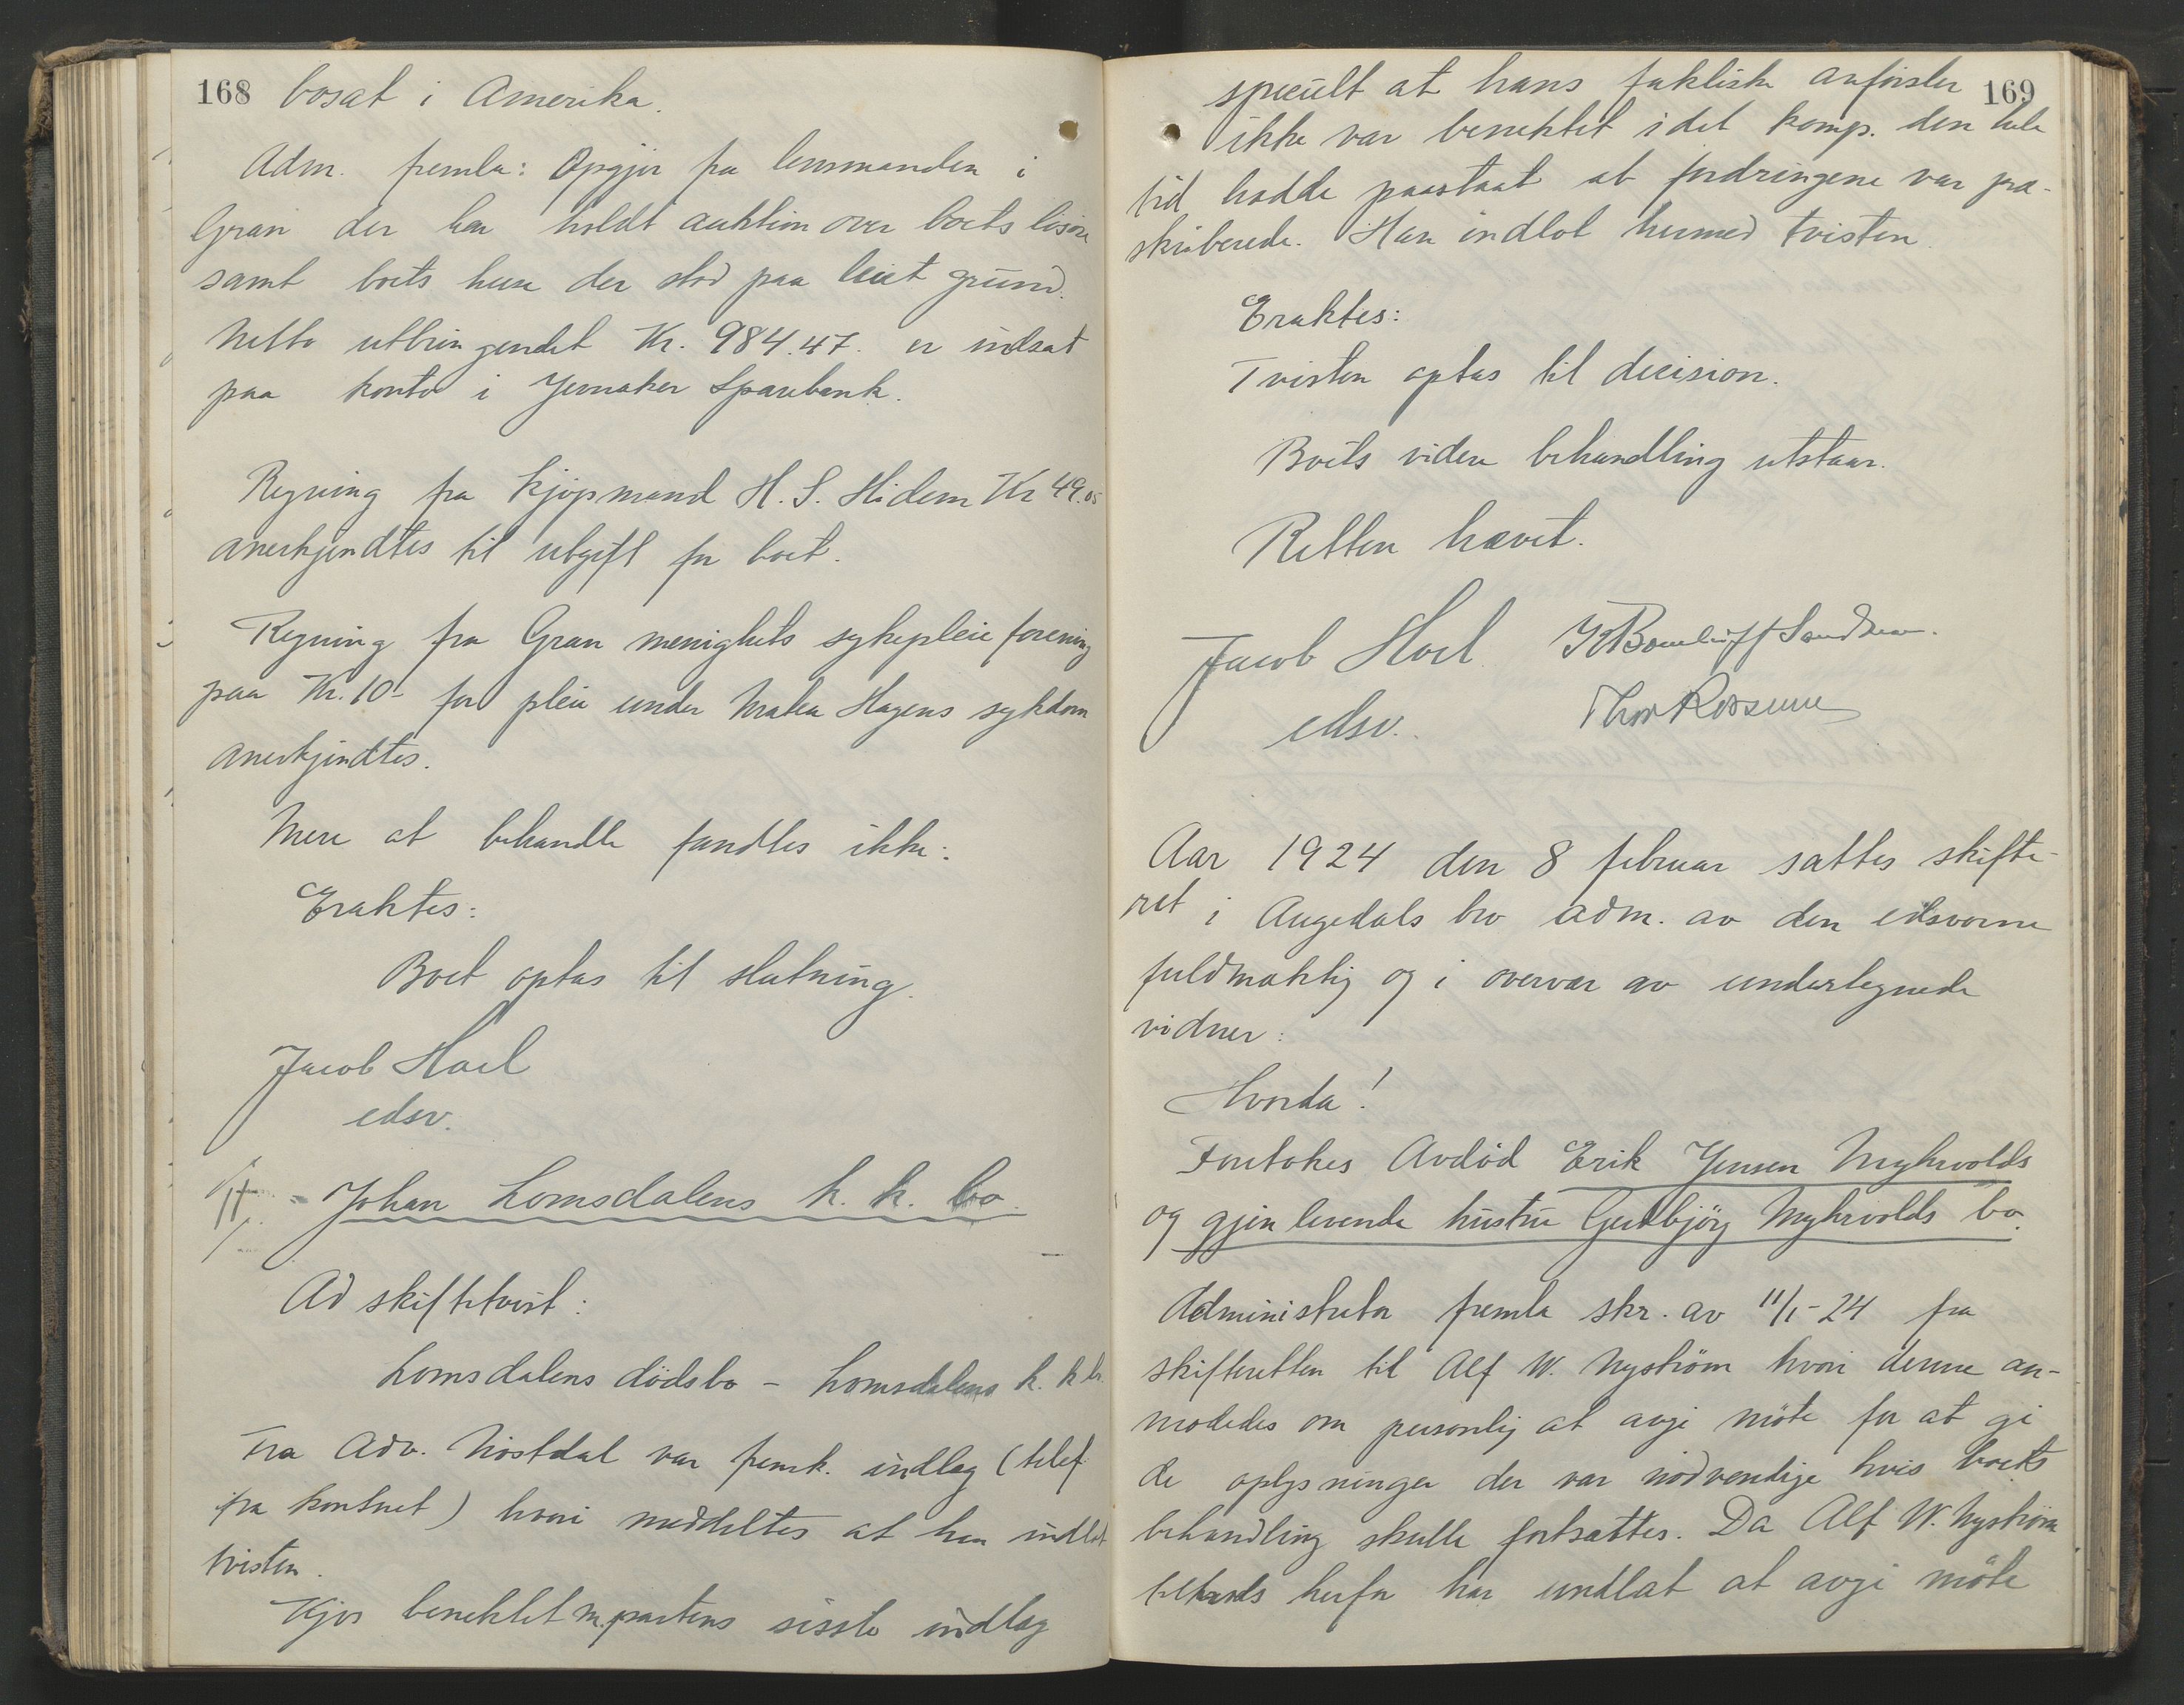 168 bosat i Amerika.
Adm. fremla: Opgjør fra lensmanden i
Gran der har holdt auktion over boets løsøre
samt boets huse der stod paa leiet grund.
Netto utbringendet Kr. 984.47. er indsat
paa konto i Jevnaker Sparebank.
Regning fra kjøpmand H. S. Hidem Kr 49.05
anerkjendtes til utgift for boet.
Regning fra Gran menighets sykepleieforening
paa Kr. 10- for pleie under Hagens sykdom
anerkjendtes.
Mere at behandle fandtes ikke.
Eraktes:
Boet optas til slutning.
Jacob Hoel
edsv.
Johan Lomsdalens k. k. bo.
Ad skiftetvist:
Lomsdalens dødsbo - Lomsdalens k. k. b.
Fra Adv. Nøstdal var fremk. indlæg (telef
fra kontoret) hvori meddeltes at han indlot
tvisten.
Kjos benektet m.partens sisste indlæg
169
specielt at hans faktiske anførsler
ikke var benektet idet komp. den hele
tid hadde paastaat at fordringene var præ-
skriberede. Han indlot hermed tvisten.
Eraktes:
Tvisten optas til decision.
Boets videre behandling utstaar.
Retten hævet.
Jacob Hoel
edsv.
Thor Rossum
Aar 1924 den 8 februar sattes skifte-
ret i Augedals bro adm. av den edsvorne
fuldmæktig og i overvær av undertegnede
vidner:
Hvorda!
Foretokes Avdød Erik Jensen Myhrvolds
og gjenlevende hustru Gudbjørg Myhrvolds bo.
Administrator fremla skr. av 11/1-24 fra
skifteretten til Alf W. Nystrøm hvori denne an-
modedes om personlig at avgi møte for at gi
de oplysninger der var nødvendige hvis boets
behandling skulle fortsættes. Da Alf W. Nystrøm
herfor har undlat at avgi møte